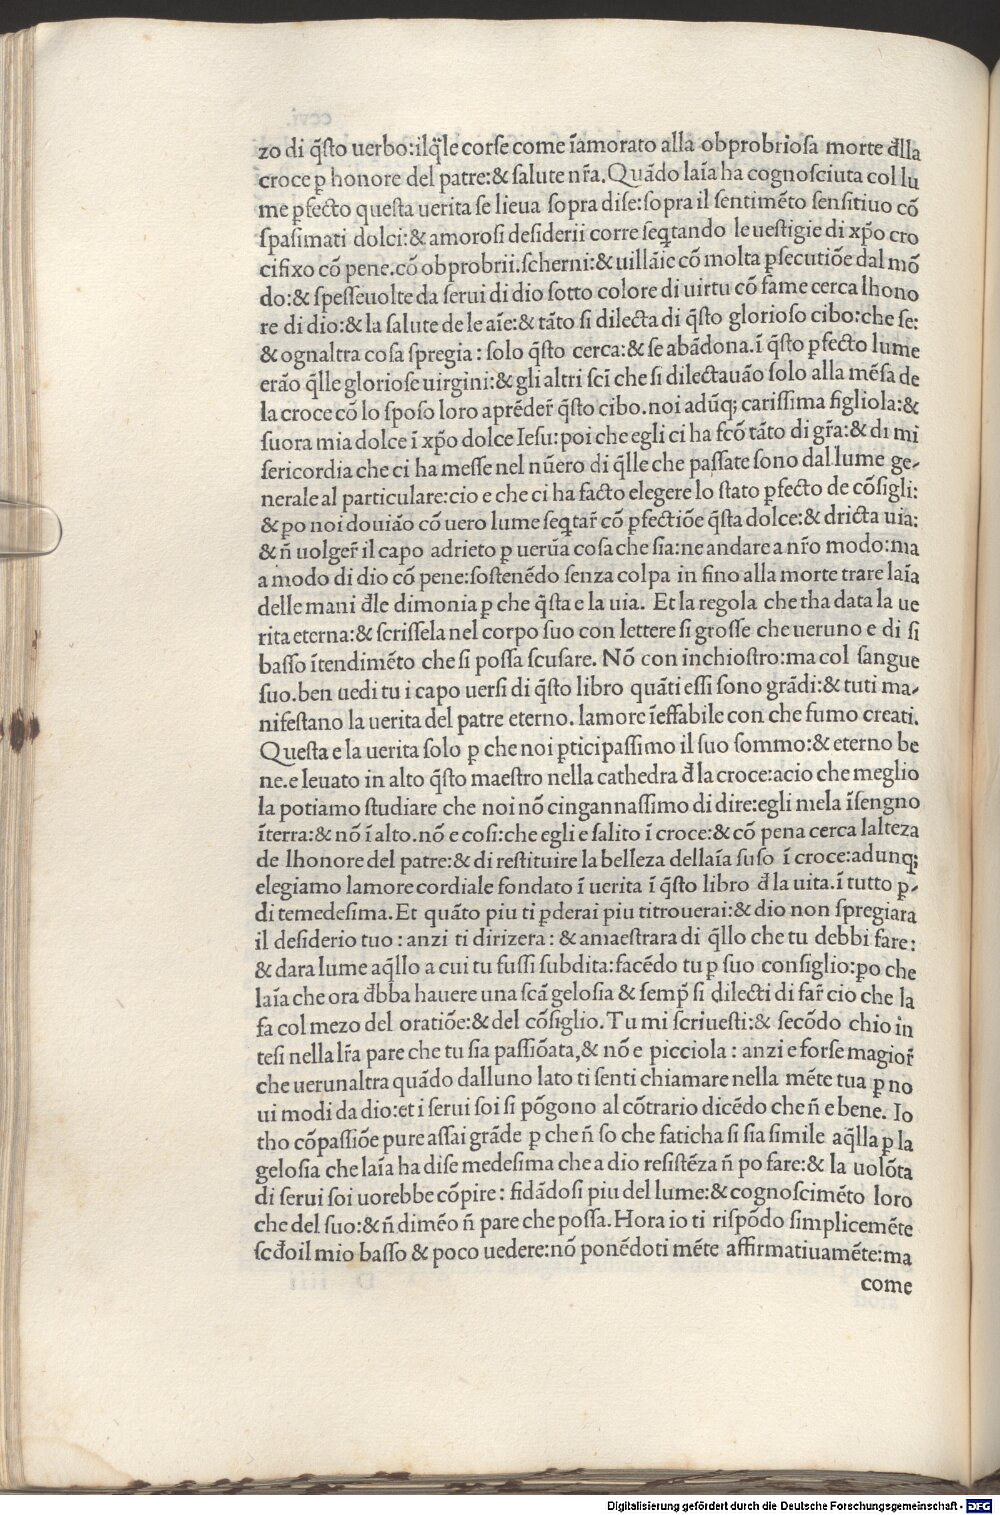 zo di q̃sto uerbo:ilq̃le corse come ĩamorato alla obprobriosa morte đlla
croce ꝑ honore del patre:& salute nr̃a.Quãdo laĩa ha cognosciuta col lu
me ꝑfecto questa uerita se lieua sopra dise:sopra il sentimẽto sensitiuo cõ
spasimati dolci:& amorosi desiderii corre seq̃tando le uestigie di xp̃o cro
cifixo cõ pene.cõ obprobrii.scherni:& uillãie cõ molta ꝑsecutiõe dal mõ
do:& spesseuolte da serui di dio sotto colore di uirtu cõ fame cerca lhono
re di dio:& la salute de le aĩe:& tãto si dilecta di q̃sto glorioso cibo:che se:
& ognaltra cosa spregia: solo q̃sto cerca:& se abãdona.ĩ q̃sto ꝑfecto lume
erão q̃lle gloriose uirgini:& gli altri sc̃i che si dilectauão solo alla mẽsa de
la croce cõ lo sposo loro aprẽder̃ q̃sto cibo.noi adũq; carissima figliola:&
suora mia dolce ĩ xp̃o dolce Iesu:poi che egli ci ha fc̃o tãto di gr̃a:& di mi
sericordia che ci ha messe nel nũero di q̃lle che passate sono dal lume ge-
nerale al particulare:cio e che ci ha facto elegere lo stato ꝑfecto de cõsigli:
& ꝑo noi douião cõ uero lume seq̃tar̃ cõ ꝑfectiõe q̃sta dolce:& dricta uia:
& ñ uolger̃ il capo adrieto ꝑ uerũa cosa che sia:ne andare a nr̃o modo:ma
a modo di dio cõ pene:sostenẽdo senza colpa in fino alla morte trare laĩa
delle mani đle dimonia ꝑ che q̃sta e la uia. Et la regola che tha data la ue
rita eterna:& scrissela nel corpo suo con lettere si grosse che ueruno e di si
basso ĩtendimẽto che si possa scusare. Nõ con inchiostro:ma col sangue
suo.ben uedi tu i capo uersi di q̃sto libro quãti essi sono grãdi:& tuti ma-
nifestano la uerita del patre eterno. lamore ĩeffabile con che fumo creati.
Questa e la uerita solo ꝑ che noi ꝑticipassimo il suo sommo:& eterno be
ne.e leuato in alto q̃sto maestro nella cathedra đ la croce:acio che meglio
la potiamo studiare che noi nõ cingannassimo di dire:egli mela ĩsengno
ĩterra:& nõ ĩ alto.nõ e cosi:che egli e salito ĩ croce:& cõ pena cerca lalteza
de lhonore del patre:& di restituire la belleza dellaĩa suso ĩ croce:adunq;
elegiamo lamore cordiale fondato ĩ uerita ĩ q̃sto libro đ la uita.ĩ tutto ꝑ-
di temedesima.Et quãto piu ti ꝑderai piu titrouerai:& dio non spregiara
il desiderio tuo: anzi ti dirizera: & amaestrara di q̃llo che tu debbi fare:
& dara lume aq̃llo a cui tu fussi subdita:facẽdo tu ꝑ suo consiglio:ꝑo che
laĩa che ora đbba hauere una sc̃a gelosia & semp̃ si dilecti di far̃ cio che la
fa col mezo del oratiõe:& del cõsiglio.Tu mi scriuesti:& secõdo chio in
tesi nella lr̃a pare che tu sia passiõata,& nõ e picciola: anzi e forse magior̃
che uerunaltra quãdo dalluno lato ti senti chiamare nella mẽte tua ꝑ no
ui modi da dio:et i serui soi si põgono al cõtrario dicẽdo che ñ e bene. Io
tho cõpassiõe pure assai grãde ꝑ che ñ so che faticha si sia simile aq̃lla ꝑ la
gelosia che laĩa ha dise medesima che a dio resistẽza ñ po fare:& la uolõta
di serui soi uorebbe cõpire: fidãdosi piu del lume:& cognoscimẽto loro
che del suo:& ñ dimẽo ñ pare che possa.Hora io ti rispõdo simplicemẽte
scđo il mio basso & poco uedere:nõ ponẽdoti mẽte affirmatiuamẽte:ma
come
Digitalisierung gefördert durch die Deutsche Forschungsgemeinschaft - DFG